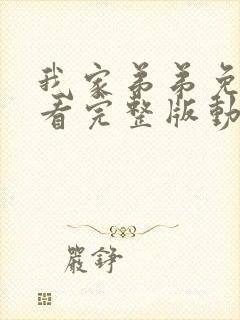 我家弟弟免
看完整版動
嚴錚